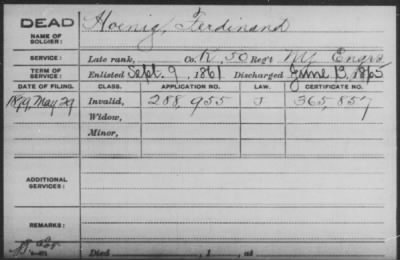 DEAD Hoenig, Ferdinand
NAME OF SOLDIER:
SERVICE: Late rank, Co. K, 50 Reg't N.Y. Engrs
TERM OF SERVICE: Enlisted Sept. 9, 1861 Discharged June 13, 1865
DATE OF FILING. CLASS. APPLICATION NO. LAW. CERTIFICATE NO.
1879, May 29 Invalid, 288,955 J 365,857
Widow,
Minor,
ADDITIONAL SERVICES:
REMARKS:
Died , 1 , at